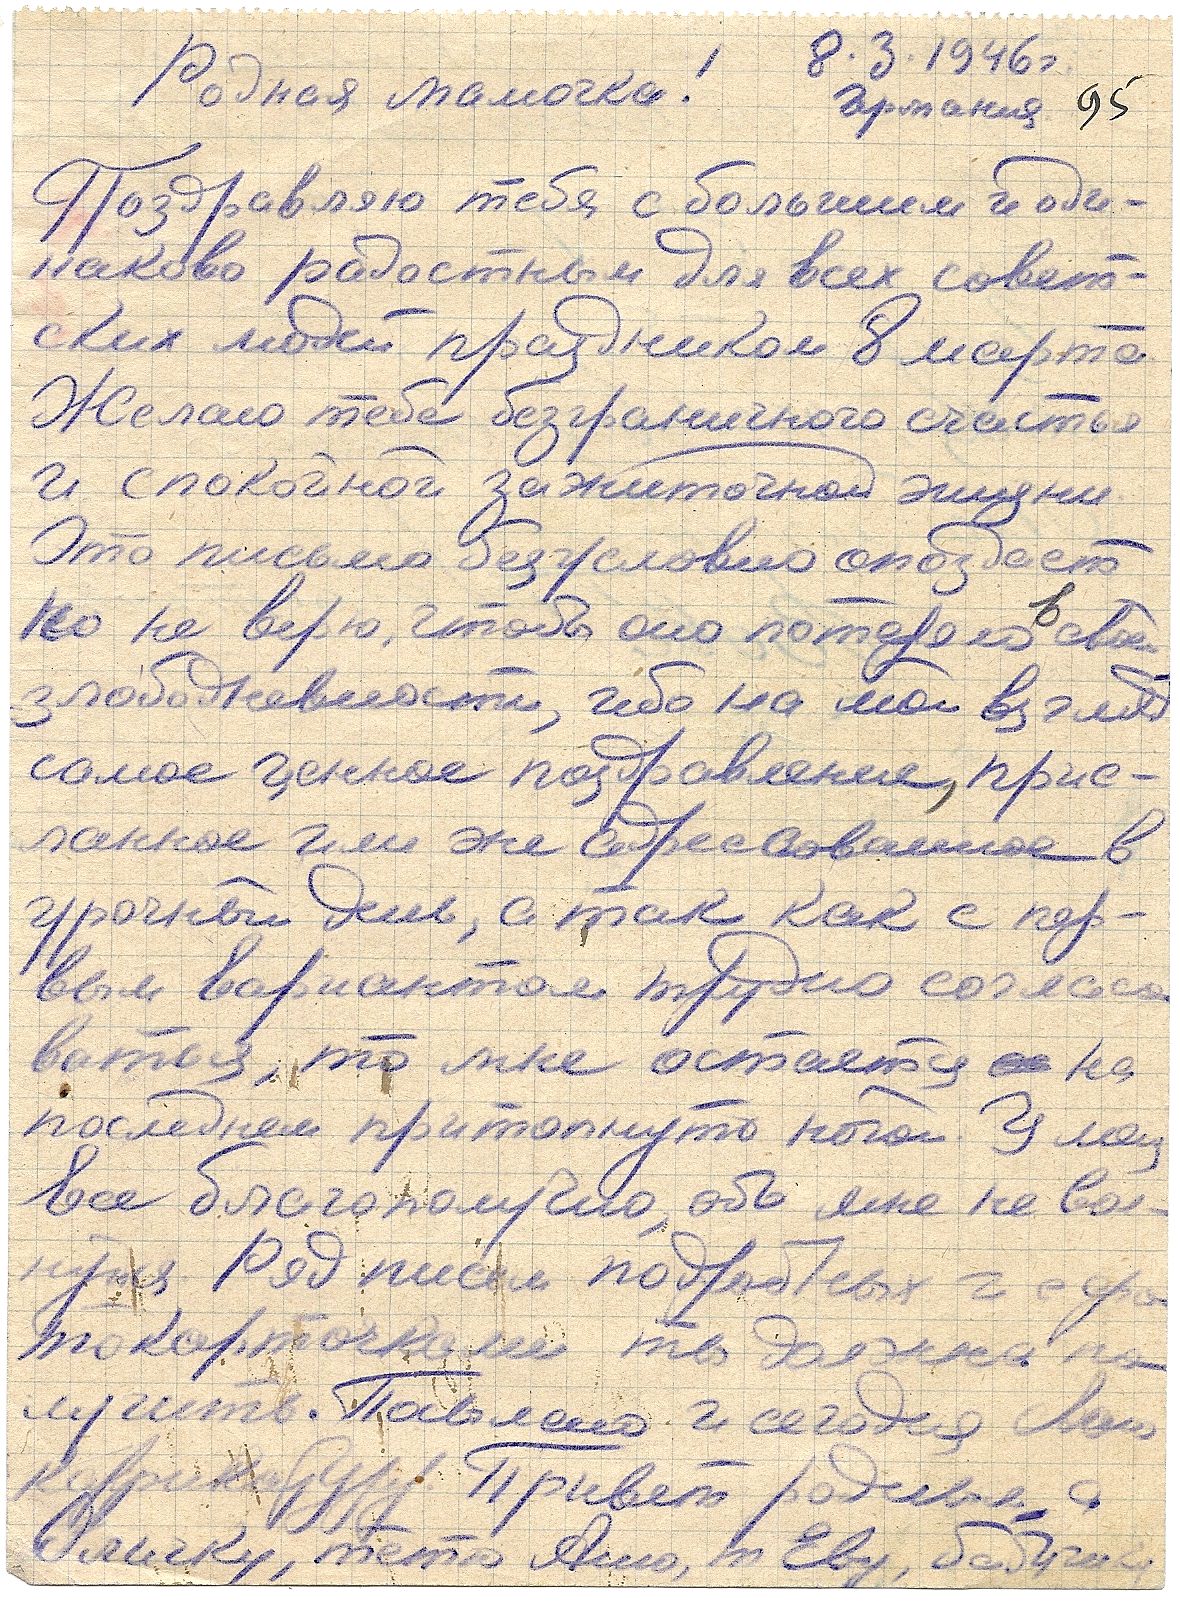 8.3.1946г.
Родная мамочка! Германия 95
Поздравляю тебя с большим и оди-
наково радостным для всех совет-
ских людей праздником 8 марта
Желаю тебе безграничного счастья
и спокойной зажиточной жизни.
Это письмо безусловно опоздает
но не верю, чтобы оно потеряло в своей
злободневности, ибо на мой взгляд
самое ценное поздравление, прис-
ланное или же адресованное в
урочный день, а так как с пер-
вым вариантом трудно согласо
ваться, то мне остается на
последнем притопнуть ногой. У меня
все благополучно, обо мне не вол-
нуйся. Ряд писем подробных и с фо-
токарточками ты должна по-
лучить. Посылаю и сегодня
карикатуру! Привет родным, а
Эммочку, тетю Аню, т Еву, бабушку